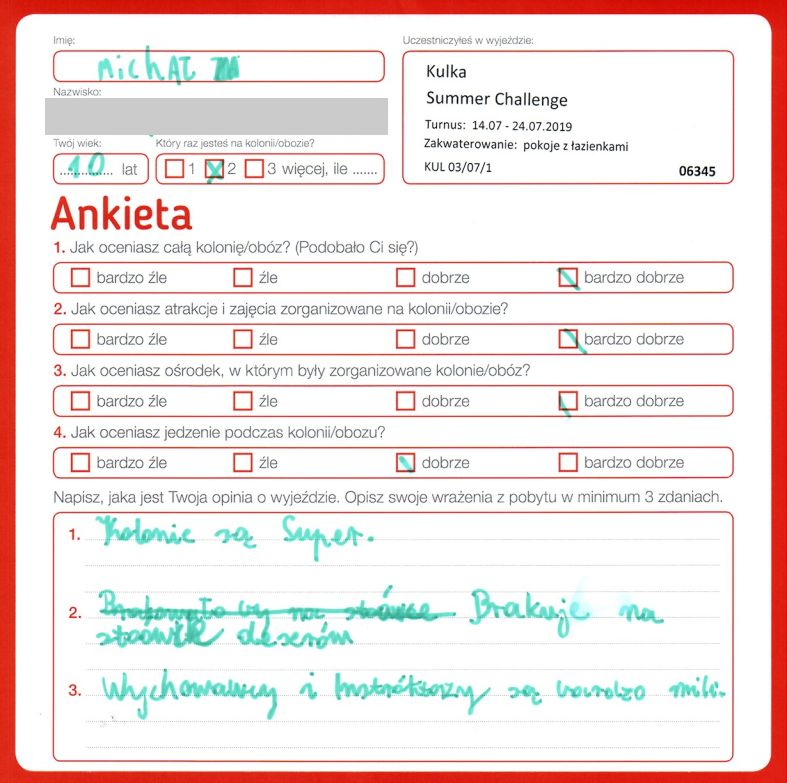 Imię:
Michał
Nazwisko:
Twój wiek:
10 lat
Który raz jesteś na kolonii/obozie?
1 2 3 więcej, ile .......
Uczestniczyłeś w wyjeździe:
Kulka
Summer Challenge
Turnus: 14.07 - 24.07.2019
Zakwaterowanie: pokoje z łazienkami
KUL 03/07/1 06345
Ankieta
1. Jak oceniasz całą kolonię/obóz? (Podobało Ci się?)
bardzo źle źle dobrze bardzo dobrze
2. Jak oceniasz atrakcje i zajęcia zorganizowane na kolonii/obozie?
bardzo źle źle dobrze bardzo dobrze
3. Jak oceniasz ośrodek, w którym były zorganizowane kolonie/obóz?
bardzo źle źle dobrze bardzo dobrze
4. Jak oceniasz jedzenie podczas kolonii/obozu?
bardzo źle źle dobrze bardzo dobrze
Napisz, jaka jest Twoja opinia o wyjeździe. Opisz swoje wrażenia z pobytu w minimum 3 zdaniach.
1. Kolonie są Super.
2. Brakuje na
deserów
3. Wychowawcy i Instróktorzy są bardzo mili.